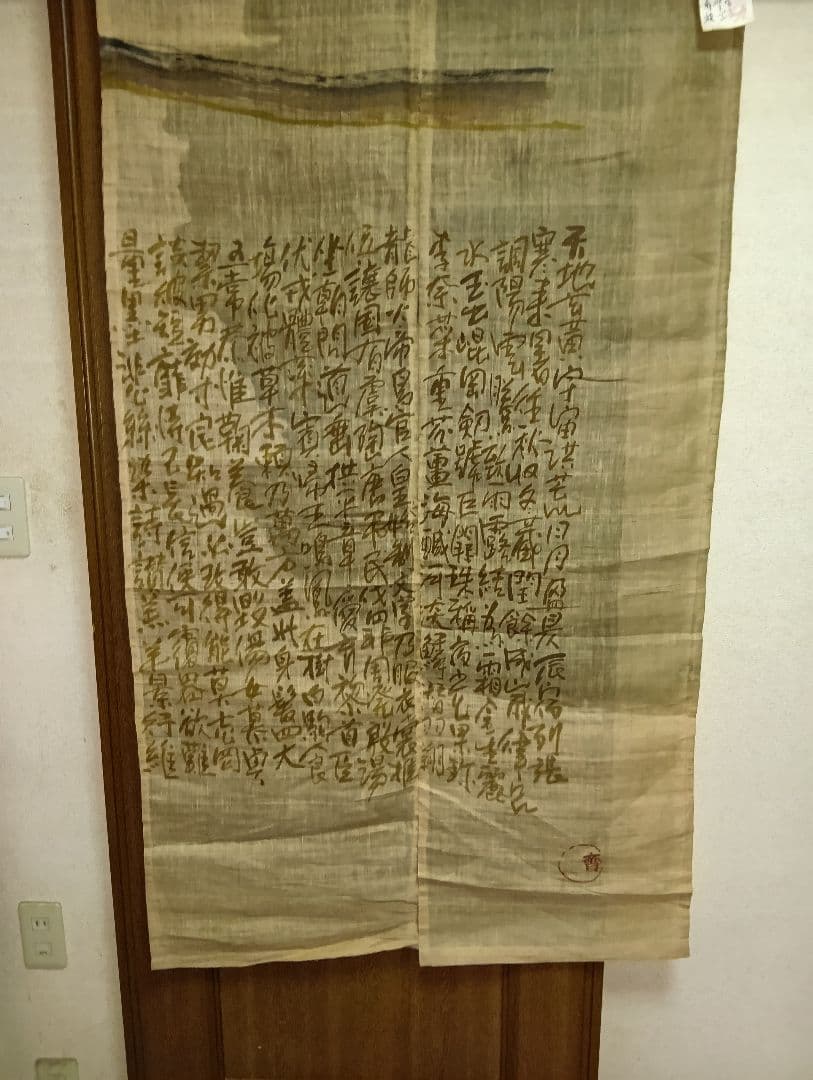 天地玄黄宇宙洪荒日月盈昃辰宿列張
寒来暑往秋收冬蔵閏餘成歳律呂
調陽雲騰致雨露結為霜金生麗
水玉出崐岡剱號巨闕珠稱夜光果珍
李柰菜重芥薑海鹹河淡鱗潜羽翔
龍師火帝鳥官人皇始制文字乃服衣裳推
位譲國有虞陶唐弔民伐罪周發殷湯
坐朝問道垂拱平章愛育黎首臣
伏戎體率賓歸王鳴鳳在樹白駒食
場化被草木頼及萬方盖此身髪四大
五常恭惟鞠養豈敢毀傷女慕貞
絜男効才良知過必改得能莫忘罔
談彼短靡恃己長信使可覆器欲難
量墨悲絲染詩讃羔羊景行維